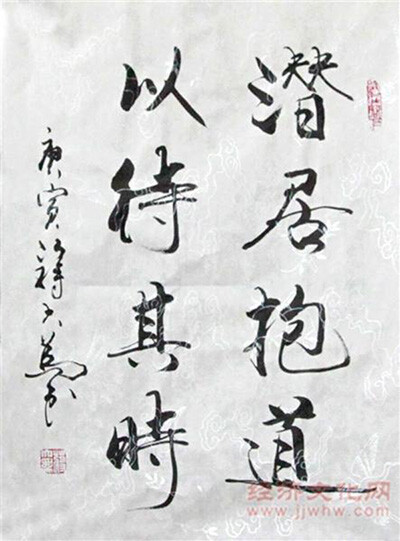 潜居抱道
以待其時
庚寅
经济文化网
www.jjwhw.com